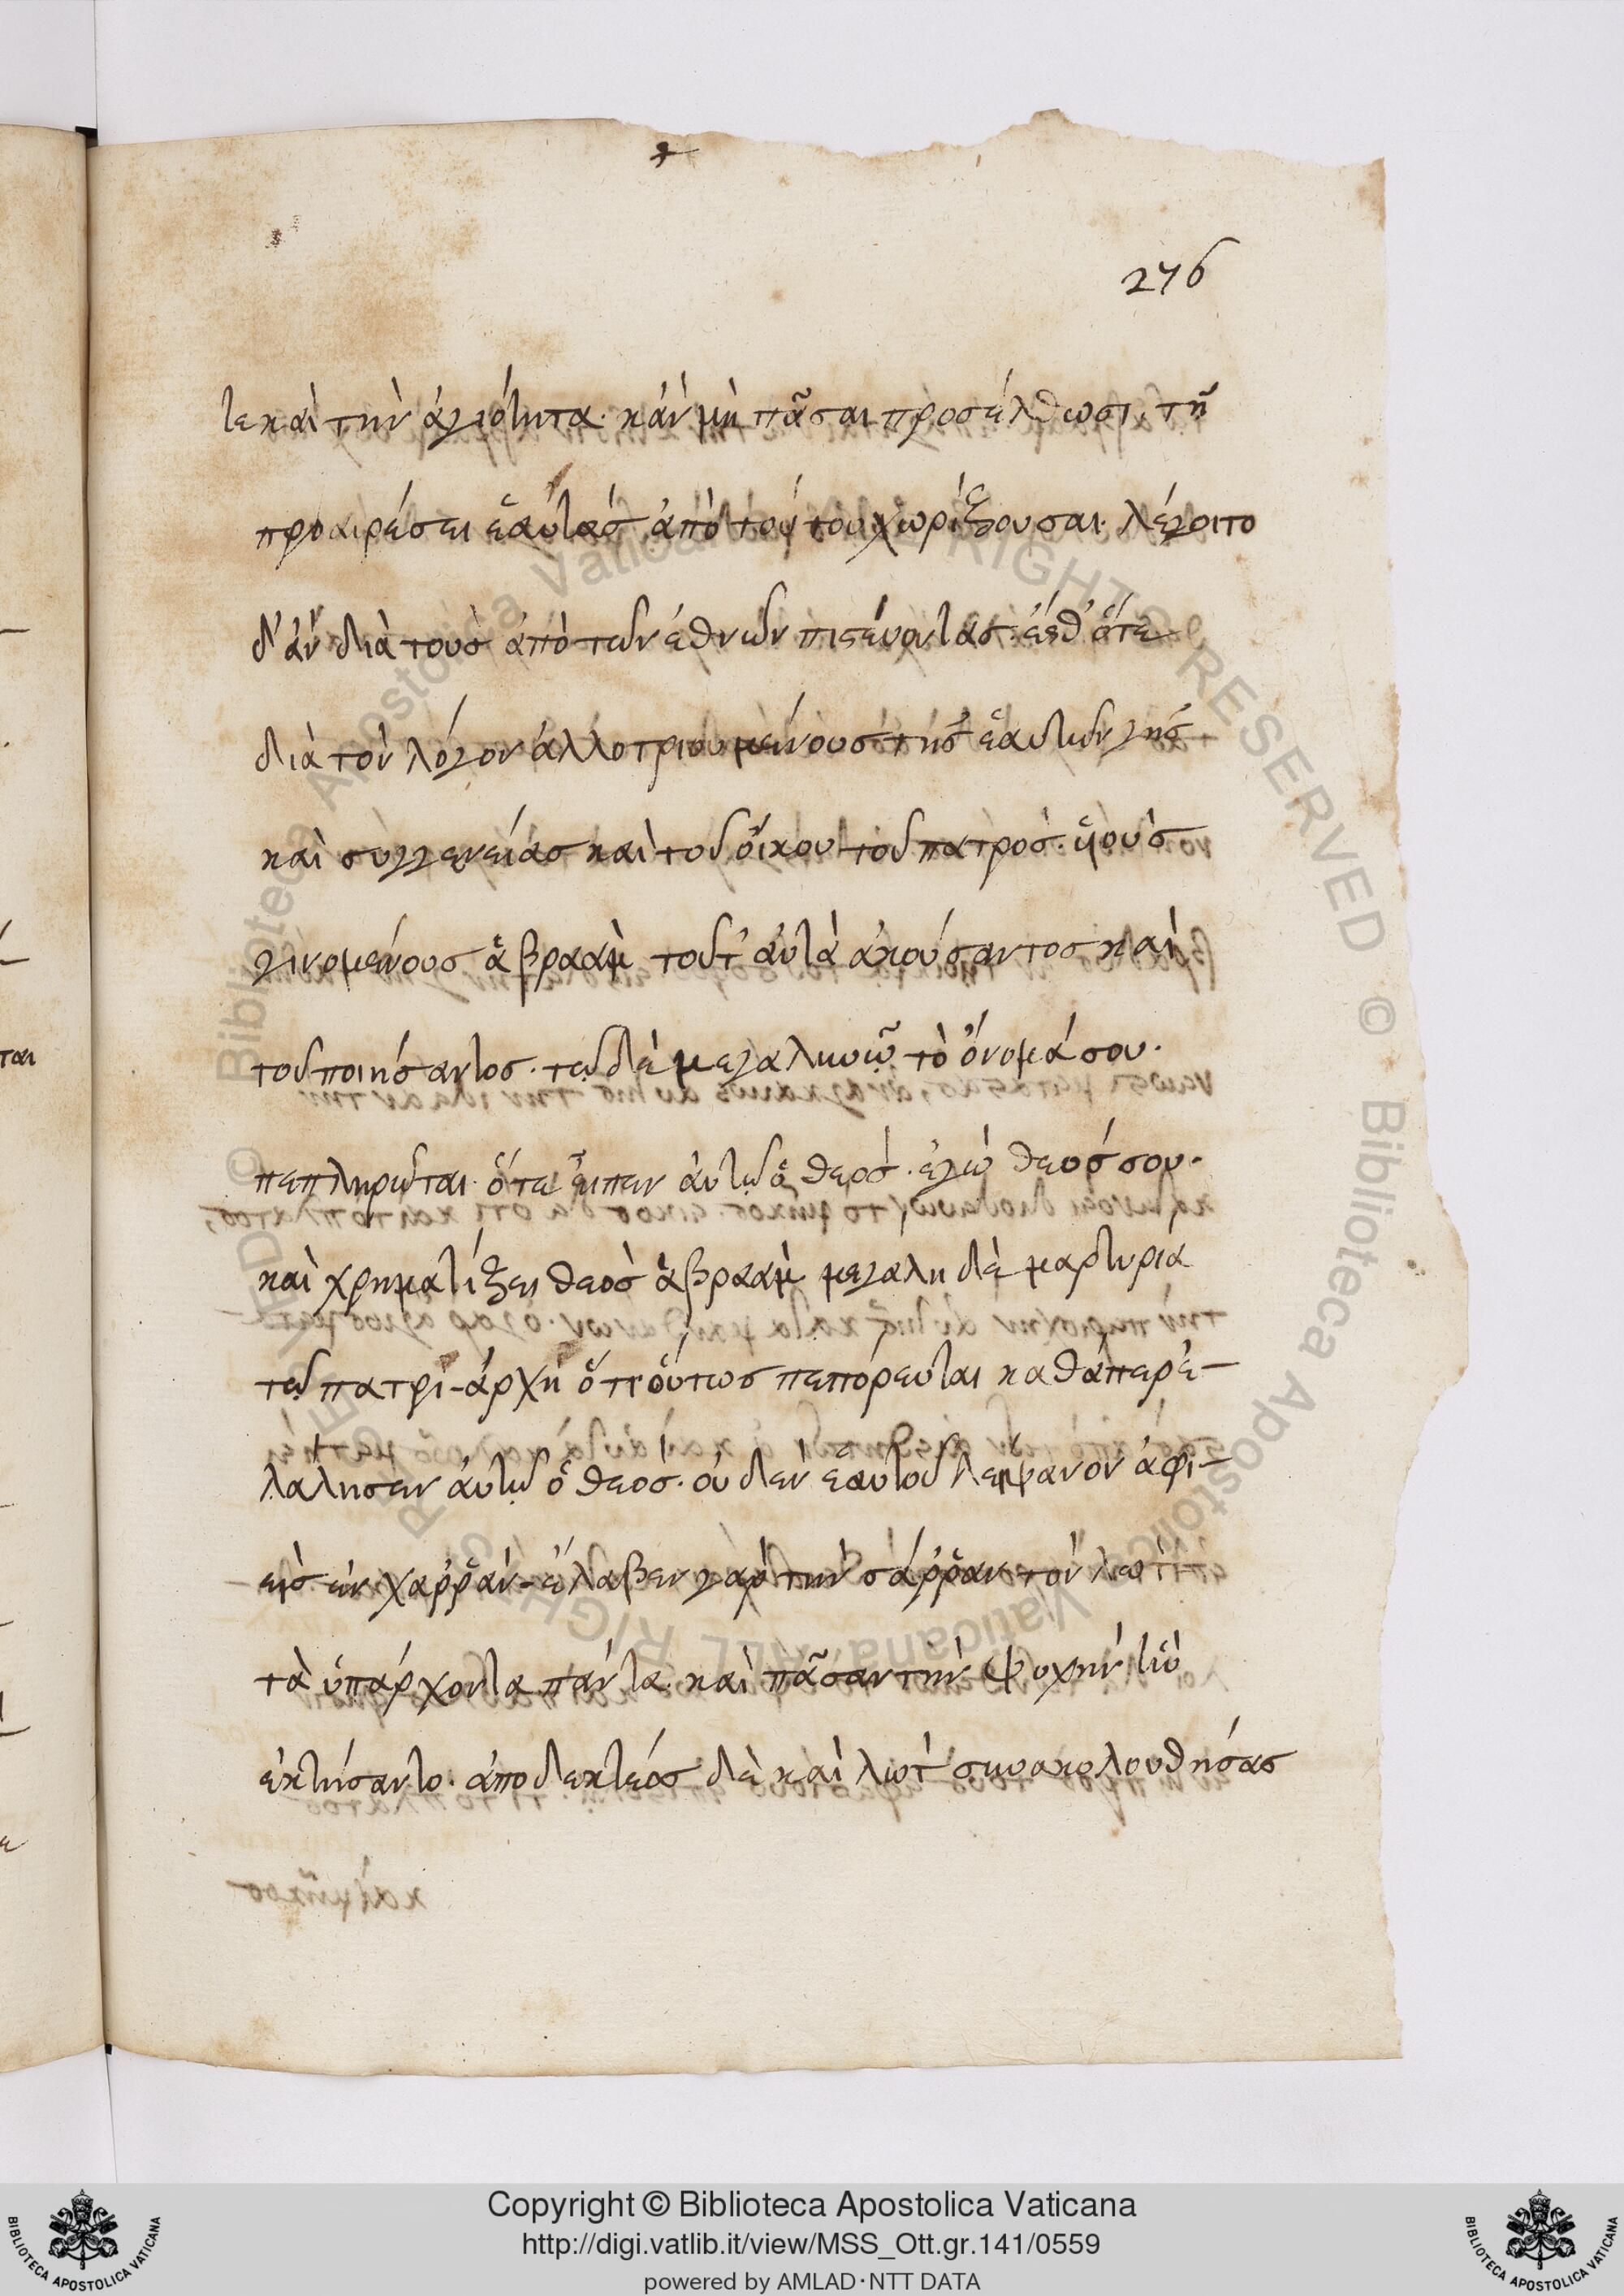 276
τε καὶ τὴν ἁγιότητα· κἂν μὴ πᾶσαι προσέλθωσι, τῇ
προαιρέσει ἑαυτὰς ἀπὸ τούτου χωρίζουσαι· λέγοιτο
δ' ἂν διὰ τοὺς ἀπὸ τῶν ἐθνῶν πιστεύοντας· ἔσθ' ὅτε
διὰ τὸν λόγον ἀλλοτριουμένους τῆς ἑαυτῶν γῆς
καὶ συγγενείας καὶ τοῦ οἴκου τοῦ πατρὸς· υἱοὺς
γινομένους ἁβραὰμ τοῦτ' αὐτὰ ἀκούσαντος καὶ
τοῦ ποιήσαντος· τῷ δὲ μεγαλυνῶ τὸ ὄνομά σου·
πεπλήρωται· ὅτε εἶπεν αὐτῷ ὁ θεός· ἐγὼ θεός σου·
καὶ χρηματίζει θεὸς ἁβραὰμ μεγάλη δὲ μαρτυρία
τῷ πατρι-άρχῃ ὅτι οὕτως πεπόρευται καθάπερ ἐ-
λάλησεν αὐτῷ ὁ θεός· οὐδὲν ἑαυτοῦ λείψανον ἀφι-
εὶς ἐν χαρρὰν- ἔλαβεν γὰρ τὴν σάρραν τὸν λὼτ
τὰ ὑπάρχοντα πάντα· καὶ πᾶσαν τὴν ψυχὴν ἣν
ἐκτήσαντο· ἀποδεκτέος δὲ καὶ λὼτ συνακολουθήσας
ται
Copyright © Biblioteca Apostolica Vaticana
http://digi.vatlib.it/view/MSS_Ott.gr.141/0559
powered by AMLAD·NTT DATA
BIBLIOTECA APOSTOLICA VATICANA
BIBLIOTECA APOSTOLICA VATICANA